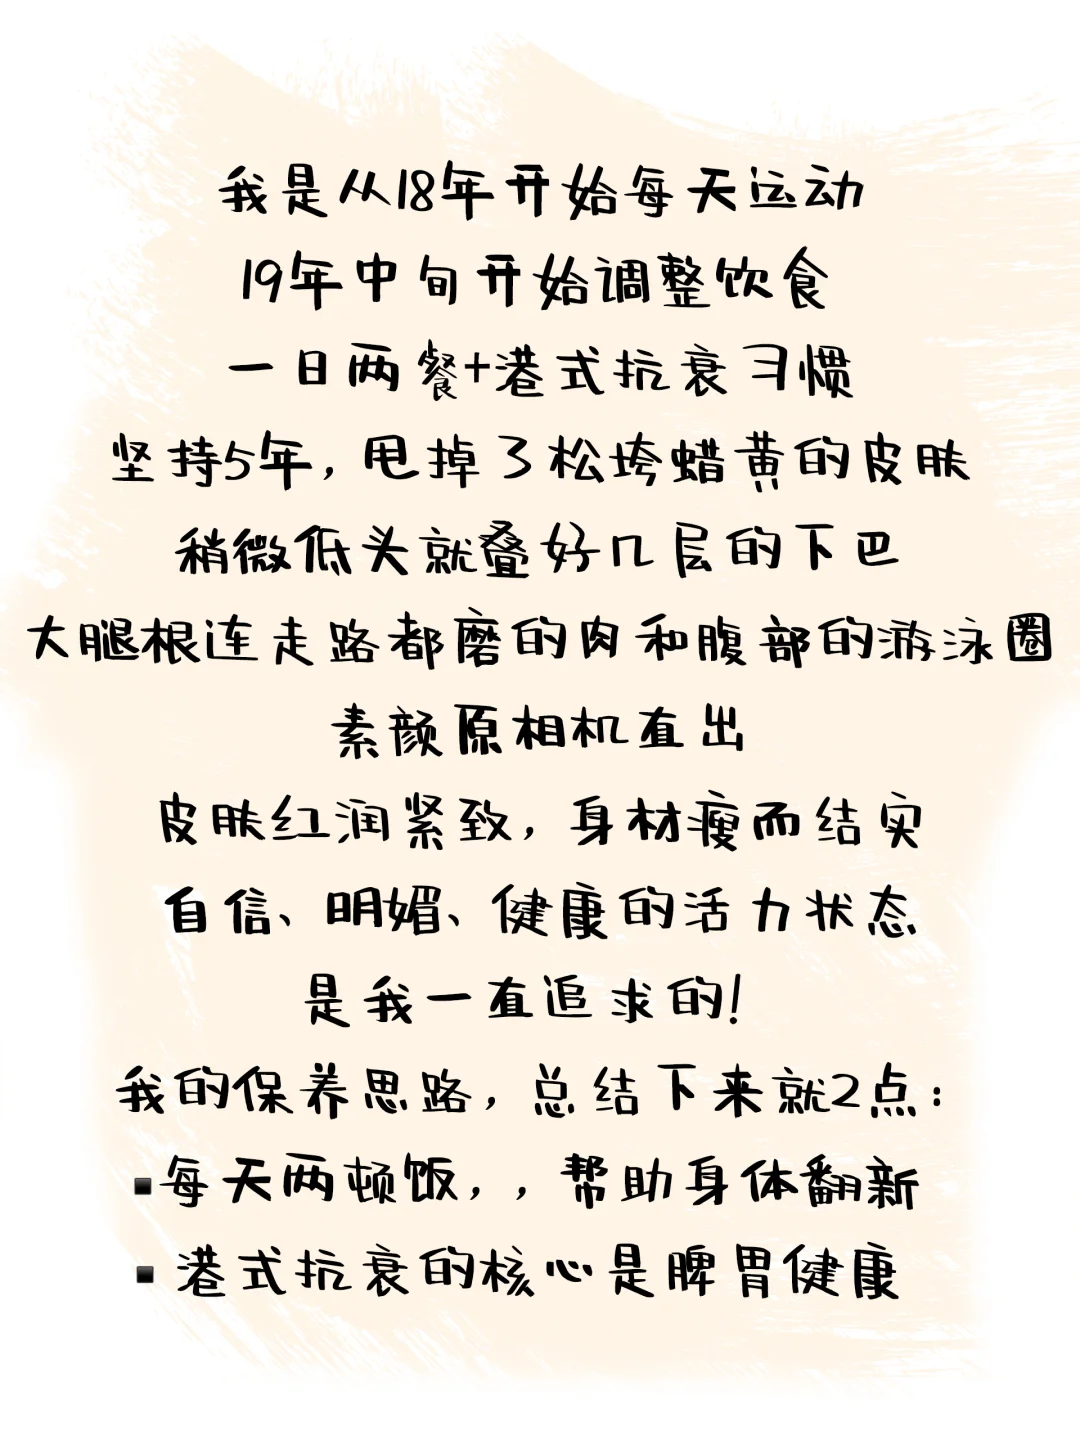 我是从18年开始每天运动
19年中旬开始调整饮食
一日两餐+港式抗衰习惯
坚持5年，甩掉了松垮蜡黄的皮肤
稍微低头就叠好几层的下巴
大腿根连走路都磨的肉和腹部的游泳圈
素颜原相机直出
皮肤红润紧致，身材瘦而结实
自信、明媚、健康的活力状态
是我一直追求的！
我的保养思路，总结下来就2点：
▪每天两顿饭，，帮助身体翻新
▪港式抗衰的核心是脾胃健康